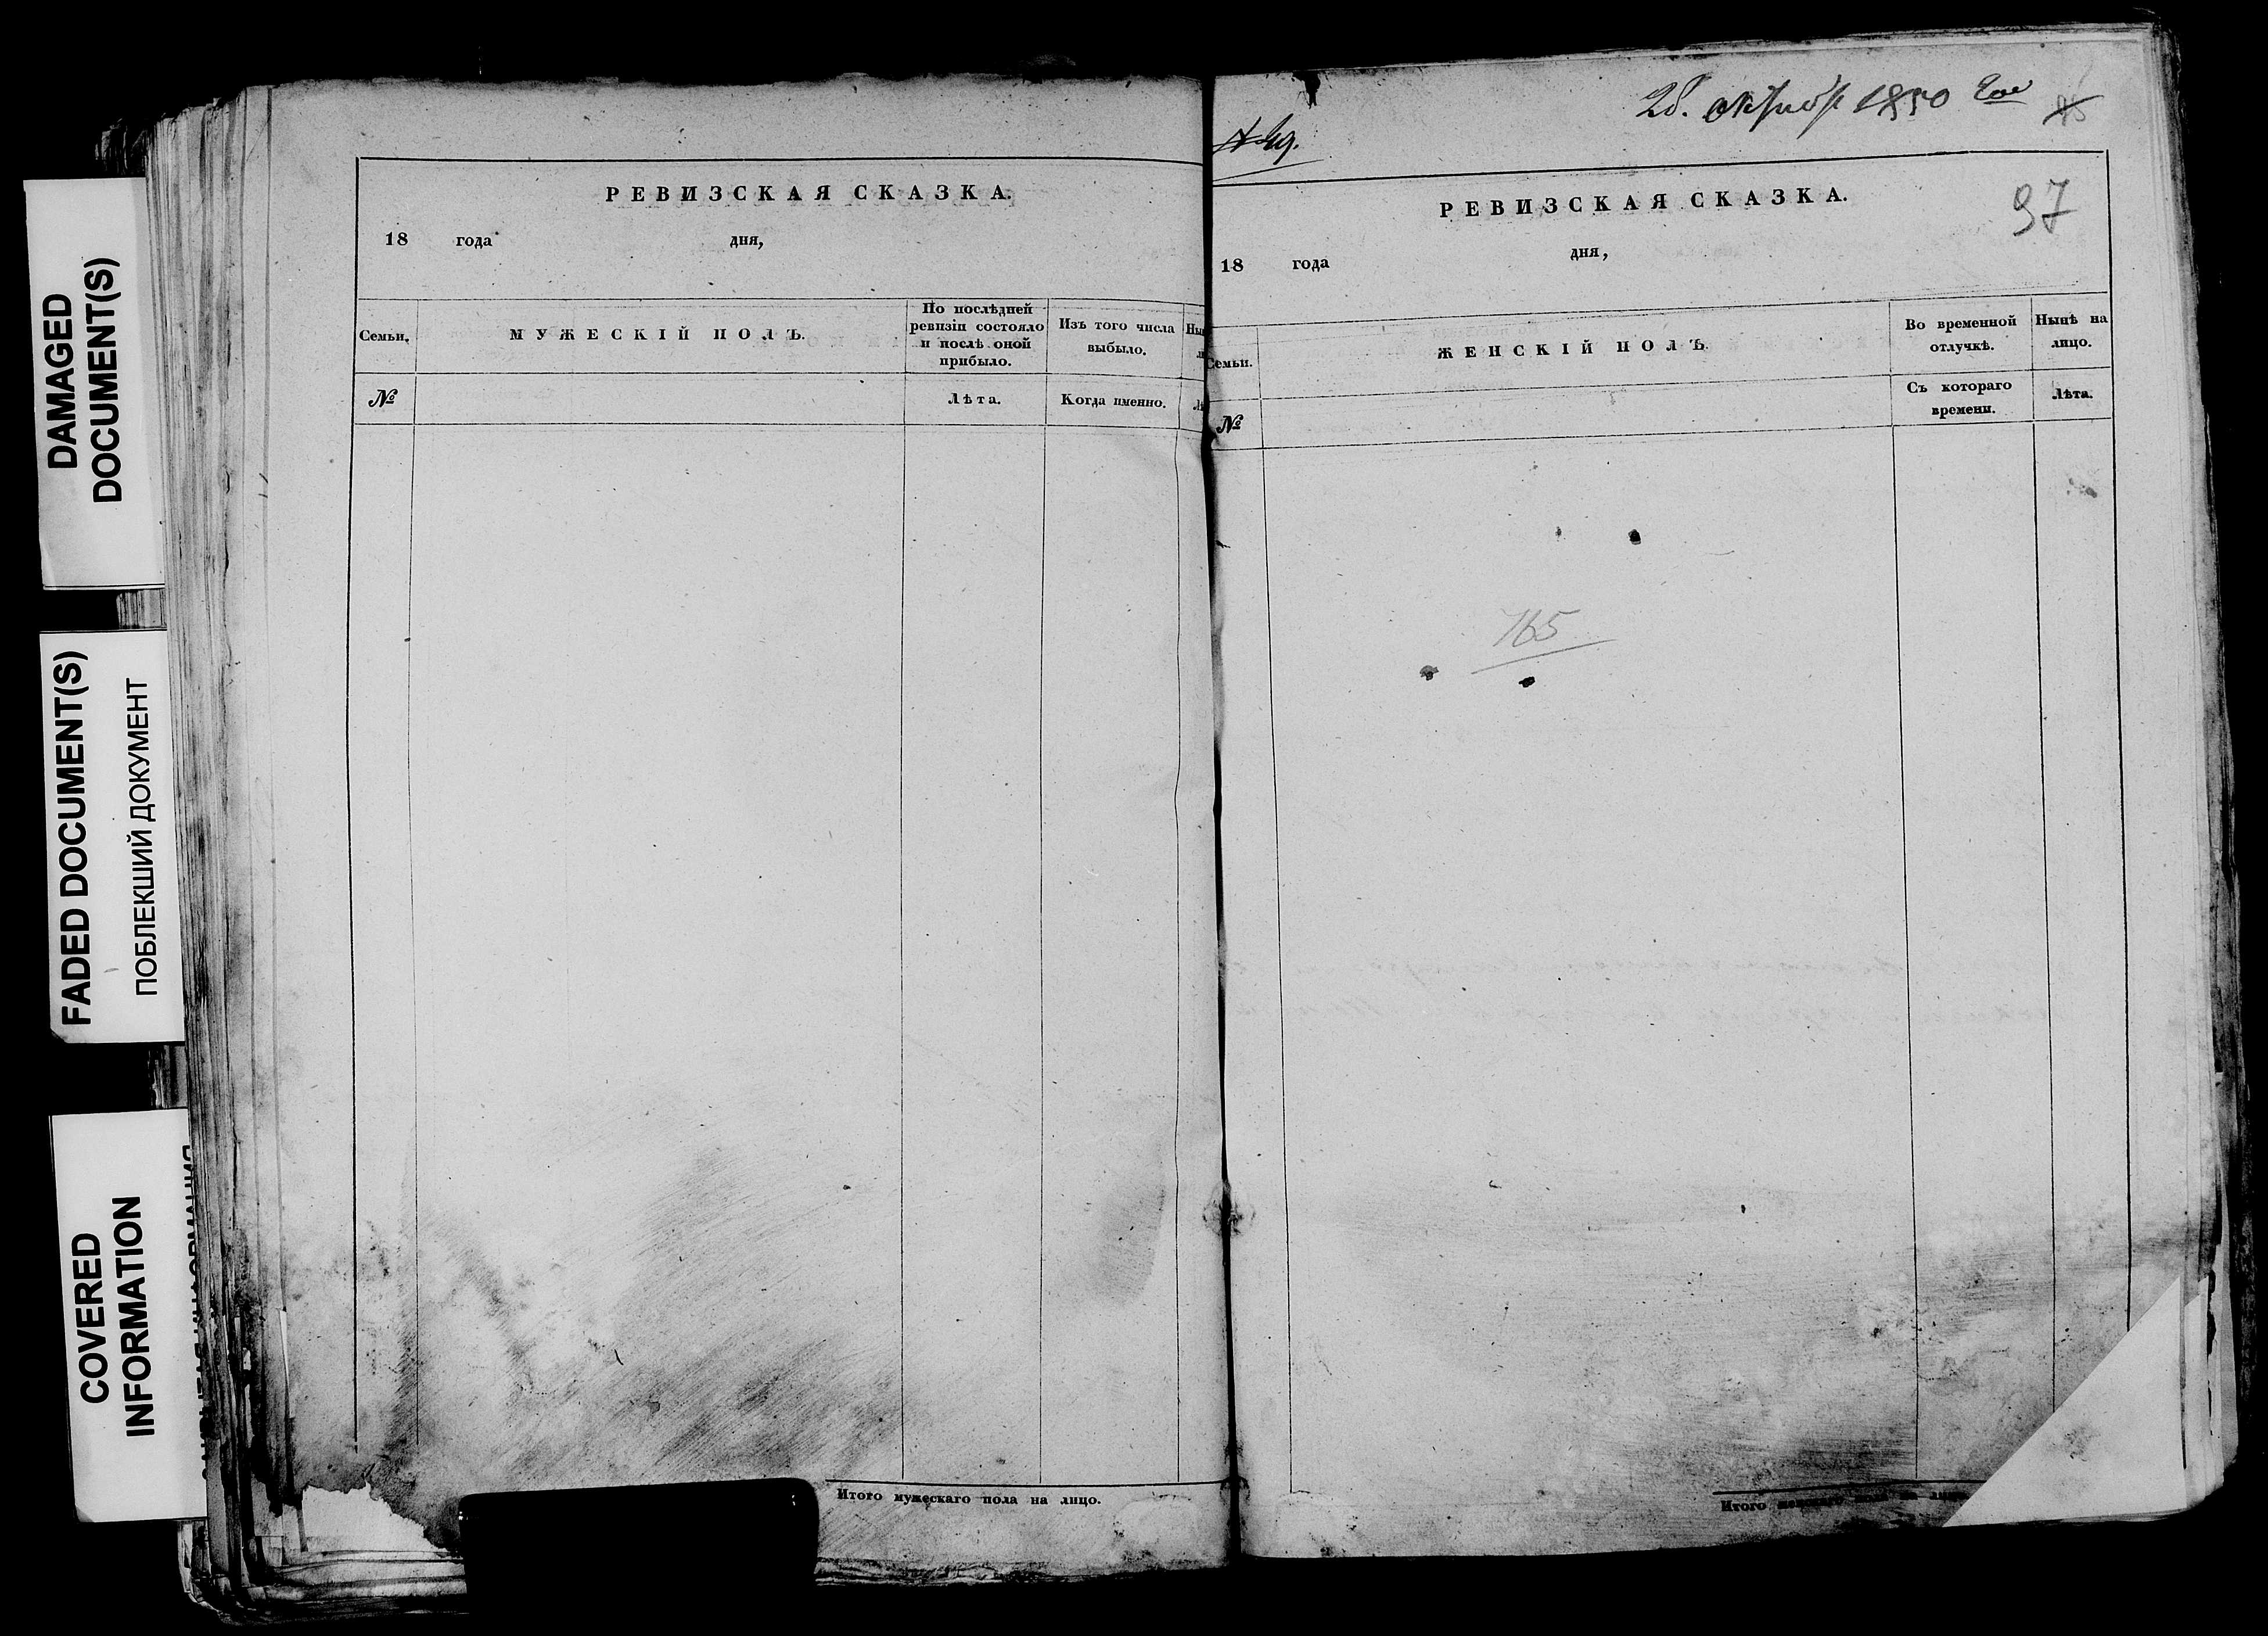 DAMAGED
DOCUMENT(S)
FADED DOCUMENT(S)
ПОБЛЕКШИЙ ДОКУМЕНТ
COVERED
INFORMATION
РЕВИЗСКАЯ СКАЗКА.
18 года дня,
Семьи.
МУЖЕСКІЙ ПОЛЪ.
По послѣдней
ревизіи состояло
и послѣ оной
прибыло.
Изъ того числа
выбыло.
№
Лѣта.
Когда именно.
Итого мужескаго пола на лицо.
28. октябр 1850
97
РЕВИЗСКАЯ СКАЗКА.
18 года дня,
Семьи.
ЖЕНСКІЙ ПОЛЪ.
Во временной
отлучкѣ.
Нынѣ на
лицо.
№
Съ котораго
времени.
Лѣта.
765
Итого женскаго пола на лицо